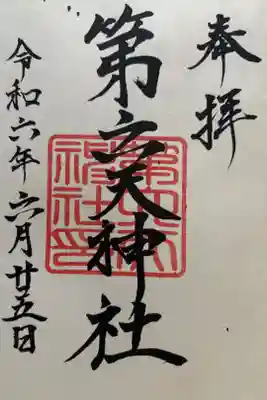 奉拝
第六天神社
令和六年六月廿五日
第六天
神社印